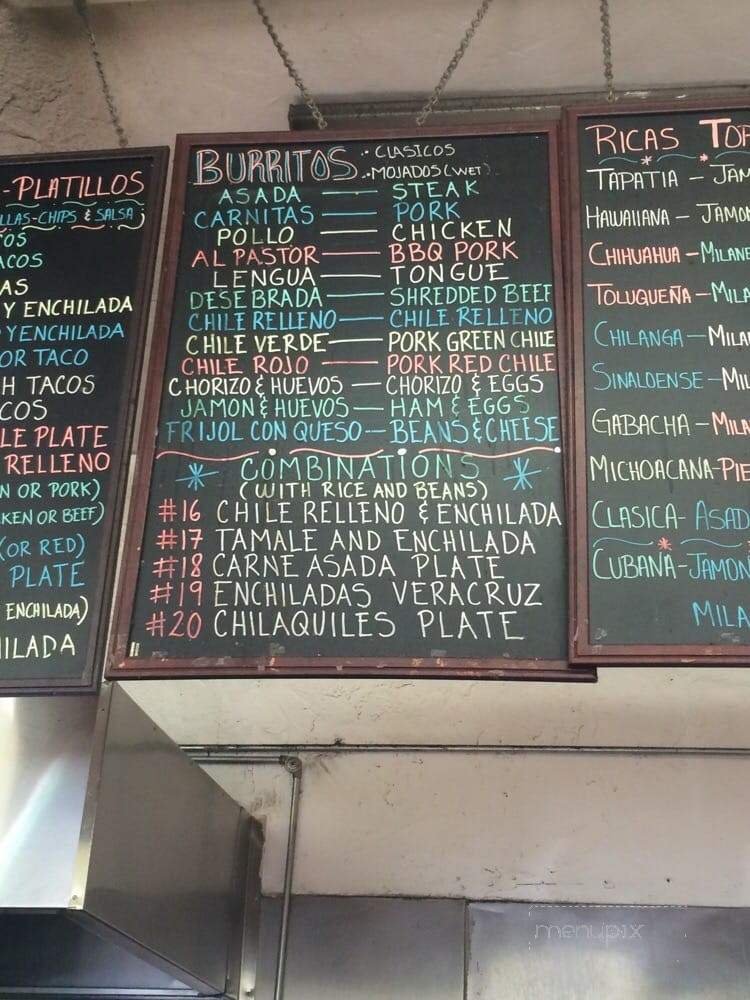 -PLATILLOS
LLAS-CHIPS & SALSA
COS
ACOS
AS
Y ENCHILADA
O Y ENCHILADA
OR TACO
H TACOS
COS
LE PLATE
RELLENO
N OR PORK)
KEN OR BEEF)
(OR RED)
PLATE
ENCHILADA)
HILADA
BURRITOS • CLASICOS
• MOJADOS (WET)
ASADA — STEAK
CARNITAS — PORK
POLLO — CHICKEN
AL PASTOR — BBQ PORK
LENGUA — TONGUE
DESEBRADA — SHREDDED BEEF
CHILE RELLENO — CHILE RELLENO
CHILE VERDE — PORK GREEN CHILE
CHILE ROJO — PORK RED CHILE
CHORIZO & HUEVOS — CHORIZO & EGGS
JAMON & HUEVOS — HAM & EGGS
FRIJOL CON QUESO — BEANS & CHEESE
COMBINATIONS
(WITH RICE AND BEANS)
#16 CHILE RELLENO & ENCHILADA
#17 TAMALE AND ENCHILADA
#18 CARNE ASADA PLATE
#19 ENCHILADAS VERACRUZ
#20 CHILAQUILES PLATE
RICAS TOR
TAPATIA — JAM
HAWAIIANA — JAMO
CHIHUAHUA — MILANE
TOLUQUEÑA — MILA
CHILANGA — MILA
SINALOENSE — MIL
GABACHA — MILA
MICHOACANA - PIE
CLASICA - ASAD
CUBANA - JAMON
MILA
menupix